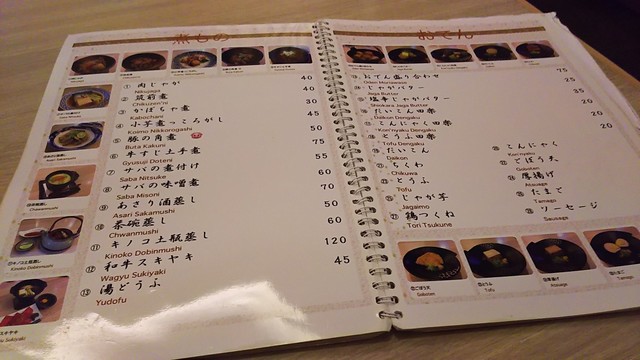 煮もの
① 肉じゃが 40
Nikujaga
② 筑前煮 40
Chikuzen'ni
③ かぼちゃ煮 30
Kabochani
④ 小芋煮っころがし 45
Koimo Nikkorogashi
⑤ 豚の角煮 50
Buta Kakuni
⑥ 牛すじ土手煮 75
Gyusuji Doteni
⑦ サバの煮付け 55
Saba Nitsuke
⑧ サバの味噌煮 60
Saba Misoni
⑨ あさり酒蒸し 70
Asari Sakamushi
⑩ 茶碗蒸し 50
Chwanmushi
⑪ キノコ土瓶蒸し 60
Kinoko Dobinmushi
⑫ 和牛スキヤキ 120
Wagyu Sukiyaki
⑬ 湯どうふ 45
Yudofu
Chwanmushi
Kinoko Dobinmushi
おでん
おでん盛り合わせ 75
Oden Moriawase
じゃがバター 25
Jaga Butter
塩辛じゃがバター 35
Shiokara Jaga Butter
だいこん田楽 20
Daikon Dengaku
こんにゃく田楽 20
Kon'nyaku Dengaku
とうふ田楽 20
Tofu Dengaku
だいこん
Daikon
ちくわ
Chikuwa
とうふ
Tofu
じゃが芋
Jagaimo
鶏つくね
Tori Tsukune
こんにゃく
Kon'nyaku
ごぼう天
Goboten
厚揚げ
Atsuage
たまご
Tamago
ソーセージ
Sausage
Goboten
Tofu
Atsuage
Tamago